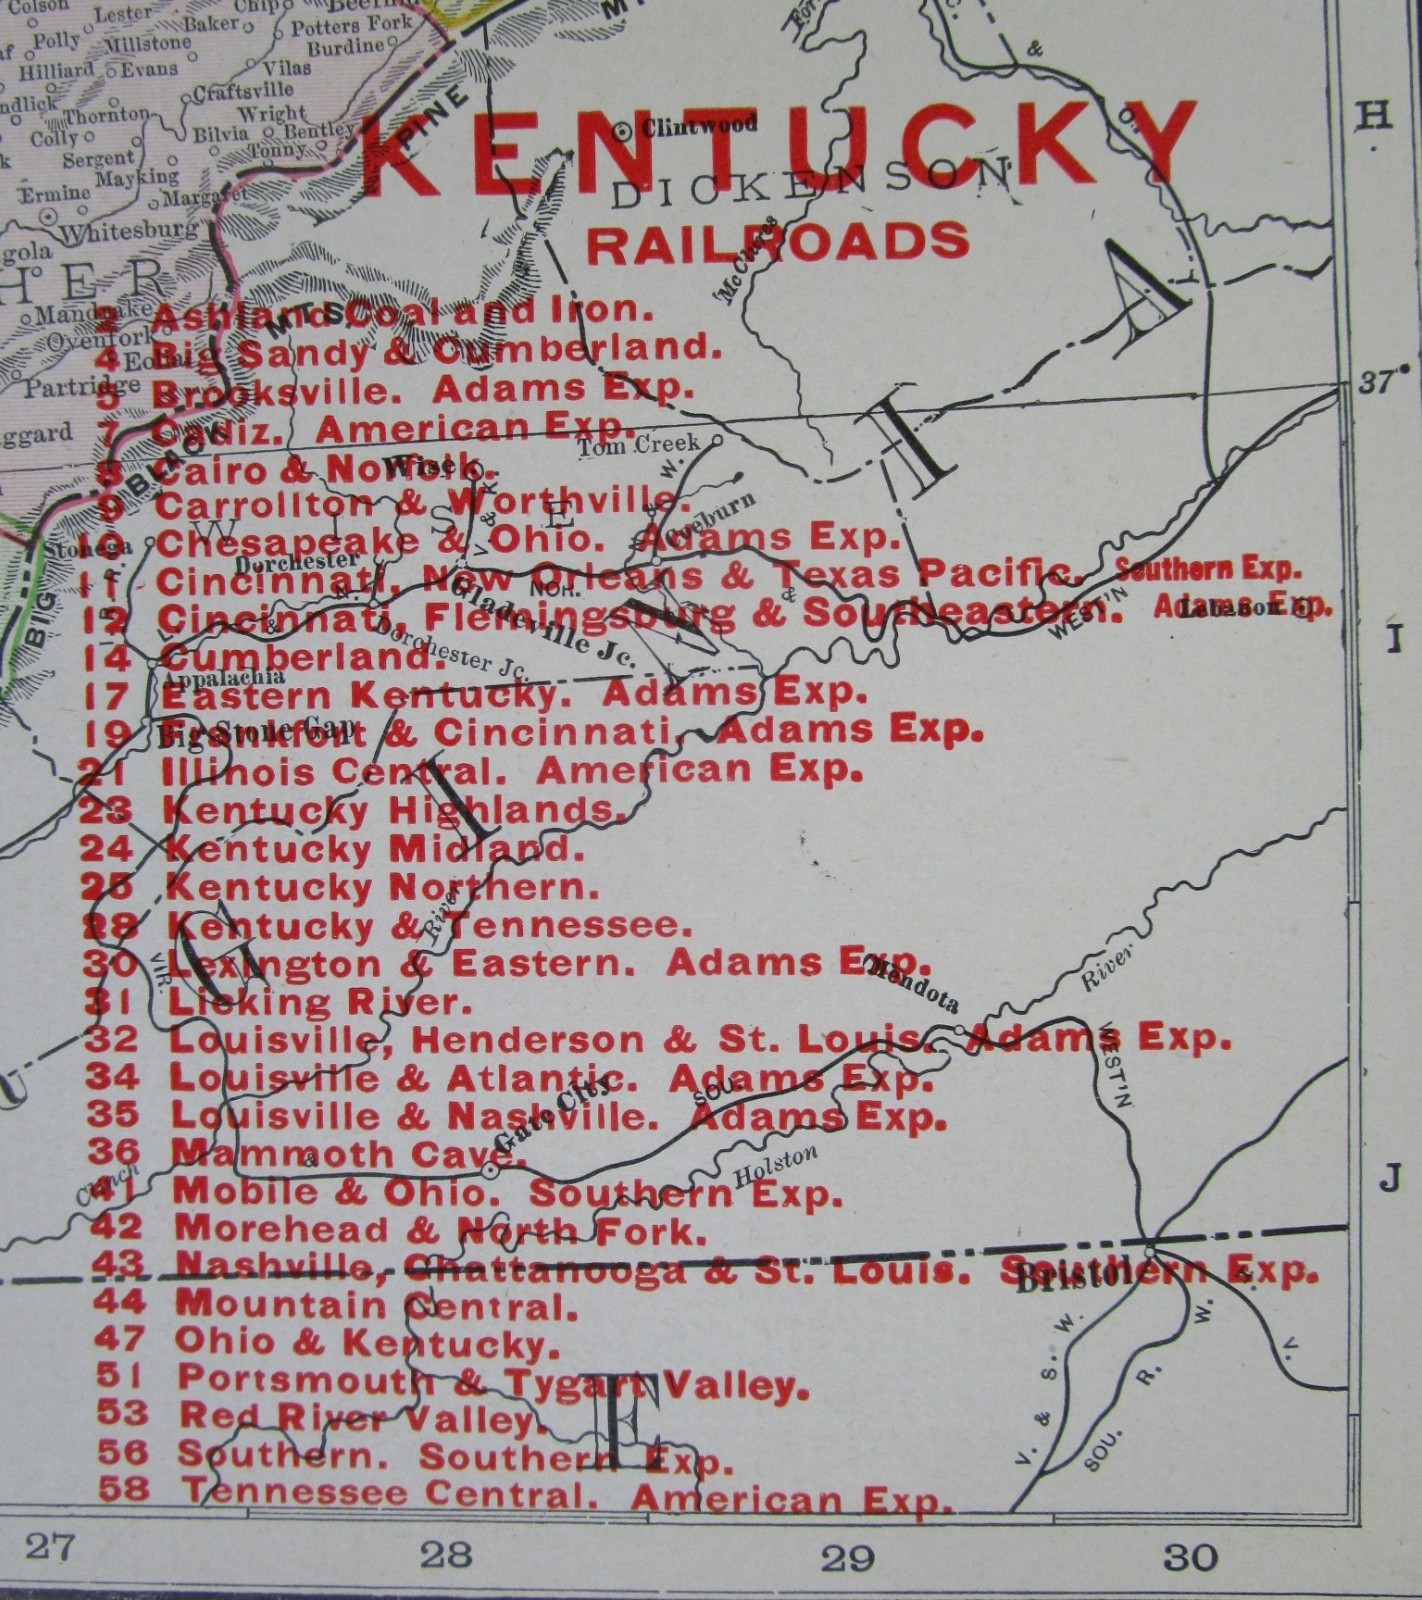 Colson
Lester
Chip
Baker
Potters Fork
Polly
Millstone
Burdine
Hilliard
Evans
Vilas
Craftsville
Thornton
Wright
Colly
Bilvia
Bentley
Sergent
Tonny
Mayking
Ermine
Margaret
Whitesburg
HER
Mandrake
Ovenfork
Eolia
Partridge
PINE
MTS.
BLACK
BIG
&
O.
H
Clintwood
KENTUCKY
DICKENSON
RAILROADS
McClures
2 Ashland Coal and Iron.
4 Big Sandy & Cumberland.
5 Brooksville. Adams Exp.
7 Cadiz. American Exp.
8 Cairo & Norfolk.
9 Carrollton & Worthville.
10 Chesapeake & Ohio. Adams Exp.
11 Cincinnati, New Orleans & Texas Pacific. Southern Exp.
12 Cincinnati, Flemingsburg & Southeastern. Adams Exp.
14 Cumberland.
17 Eastern Kentucky. Adams Exp.
19 Frankfort & Cincinnati. Adams Exp.
21 Illinois Central. American Exp.
23 Kentucky Highlands.
24 Kentucky Midland.
25 Kentucky Northern.
28 Kentucky & Tennessee.
30 Lexington & Eastern. Adams Exp.
31 Licking River.
32 Louisville, Henderson & St. Louis. Adams Exp.
34 Louisville & Atlantic. Adams Exp.
35 Louisville & Nashville. Adams Exp.
36 Mammoth Cave.
41 Mobile & Ohio. Southern Exp.
42 Morehead & North Fork.
43 Nashville, Chattanooga & St. Louis. Southern Exp.
44 Mountain Central.
47 Ohio & Kentucky.
51 Portsmouth & Tygart Valley.
53 Red River Valley.
56 Southern. Southern Exp.
58 Tennessee Central. American Exp.
37°
Tom Creek
Wise
WISE
Coeburn
Stonega
Dorchester
NOR.
&
WEST'N
Lebanon
Gladeville Jc.
Dorchester Jc.
Appalachia
Big Stone Gap
I
VIR.
&
SOU.
WEST'N
River
Mendota
River
Gate City
Clinch
Holston
J
Bristol
V. & S. W.
SOU. R.
W.
&
V.
VIRGINIA
E
27 28 29 30